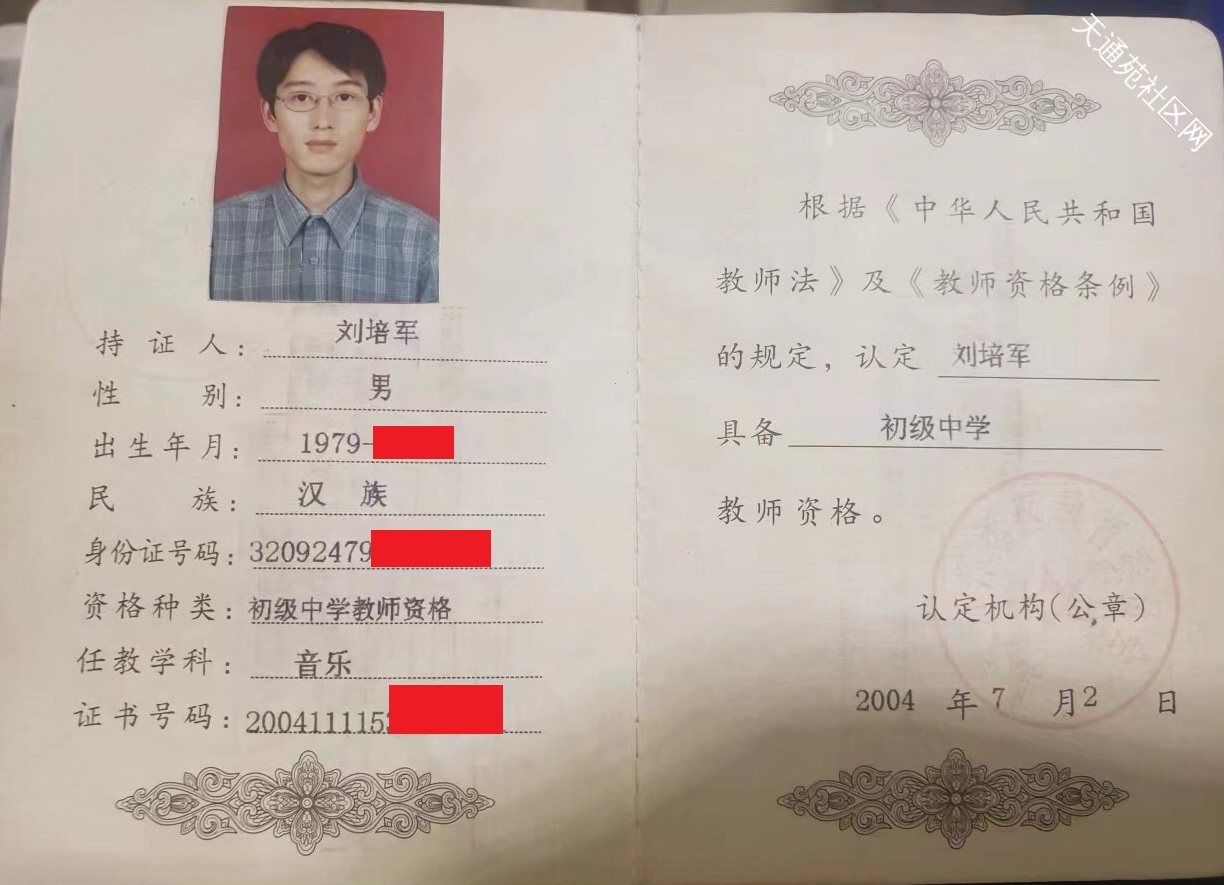 持证人：刘培军
性别：男
出生年月：1979-
民族：汉 族
身份证号码：32092479
资格种类：初级中学教师资格
任教学科：音乐
证书号码：2004111153
根据《中华人民共和国
教师法》及《教师资格条例》
的规定，认定 刘培军
具备 初级中学
教师资格。
认定机构(公章)
2004 年 7 月 2 日
天通苑社区网